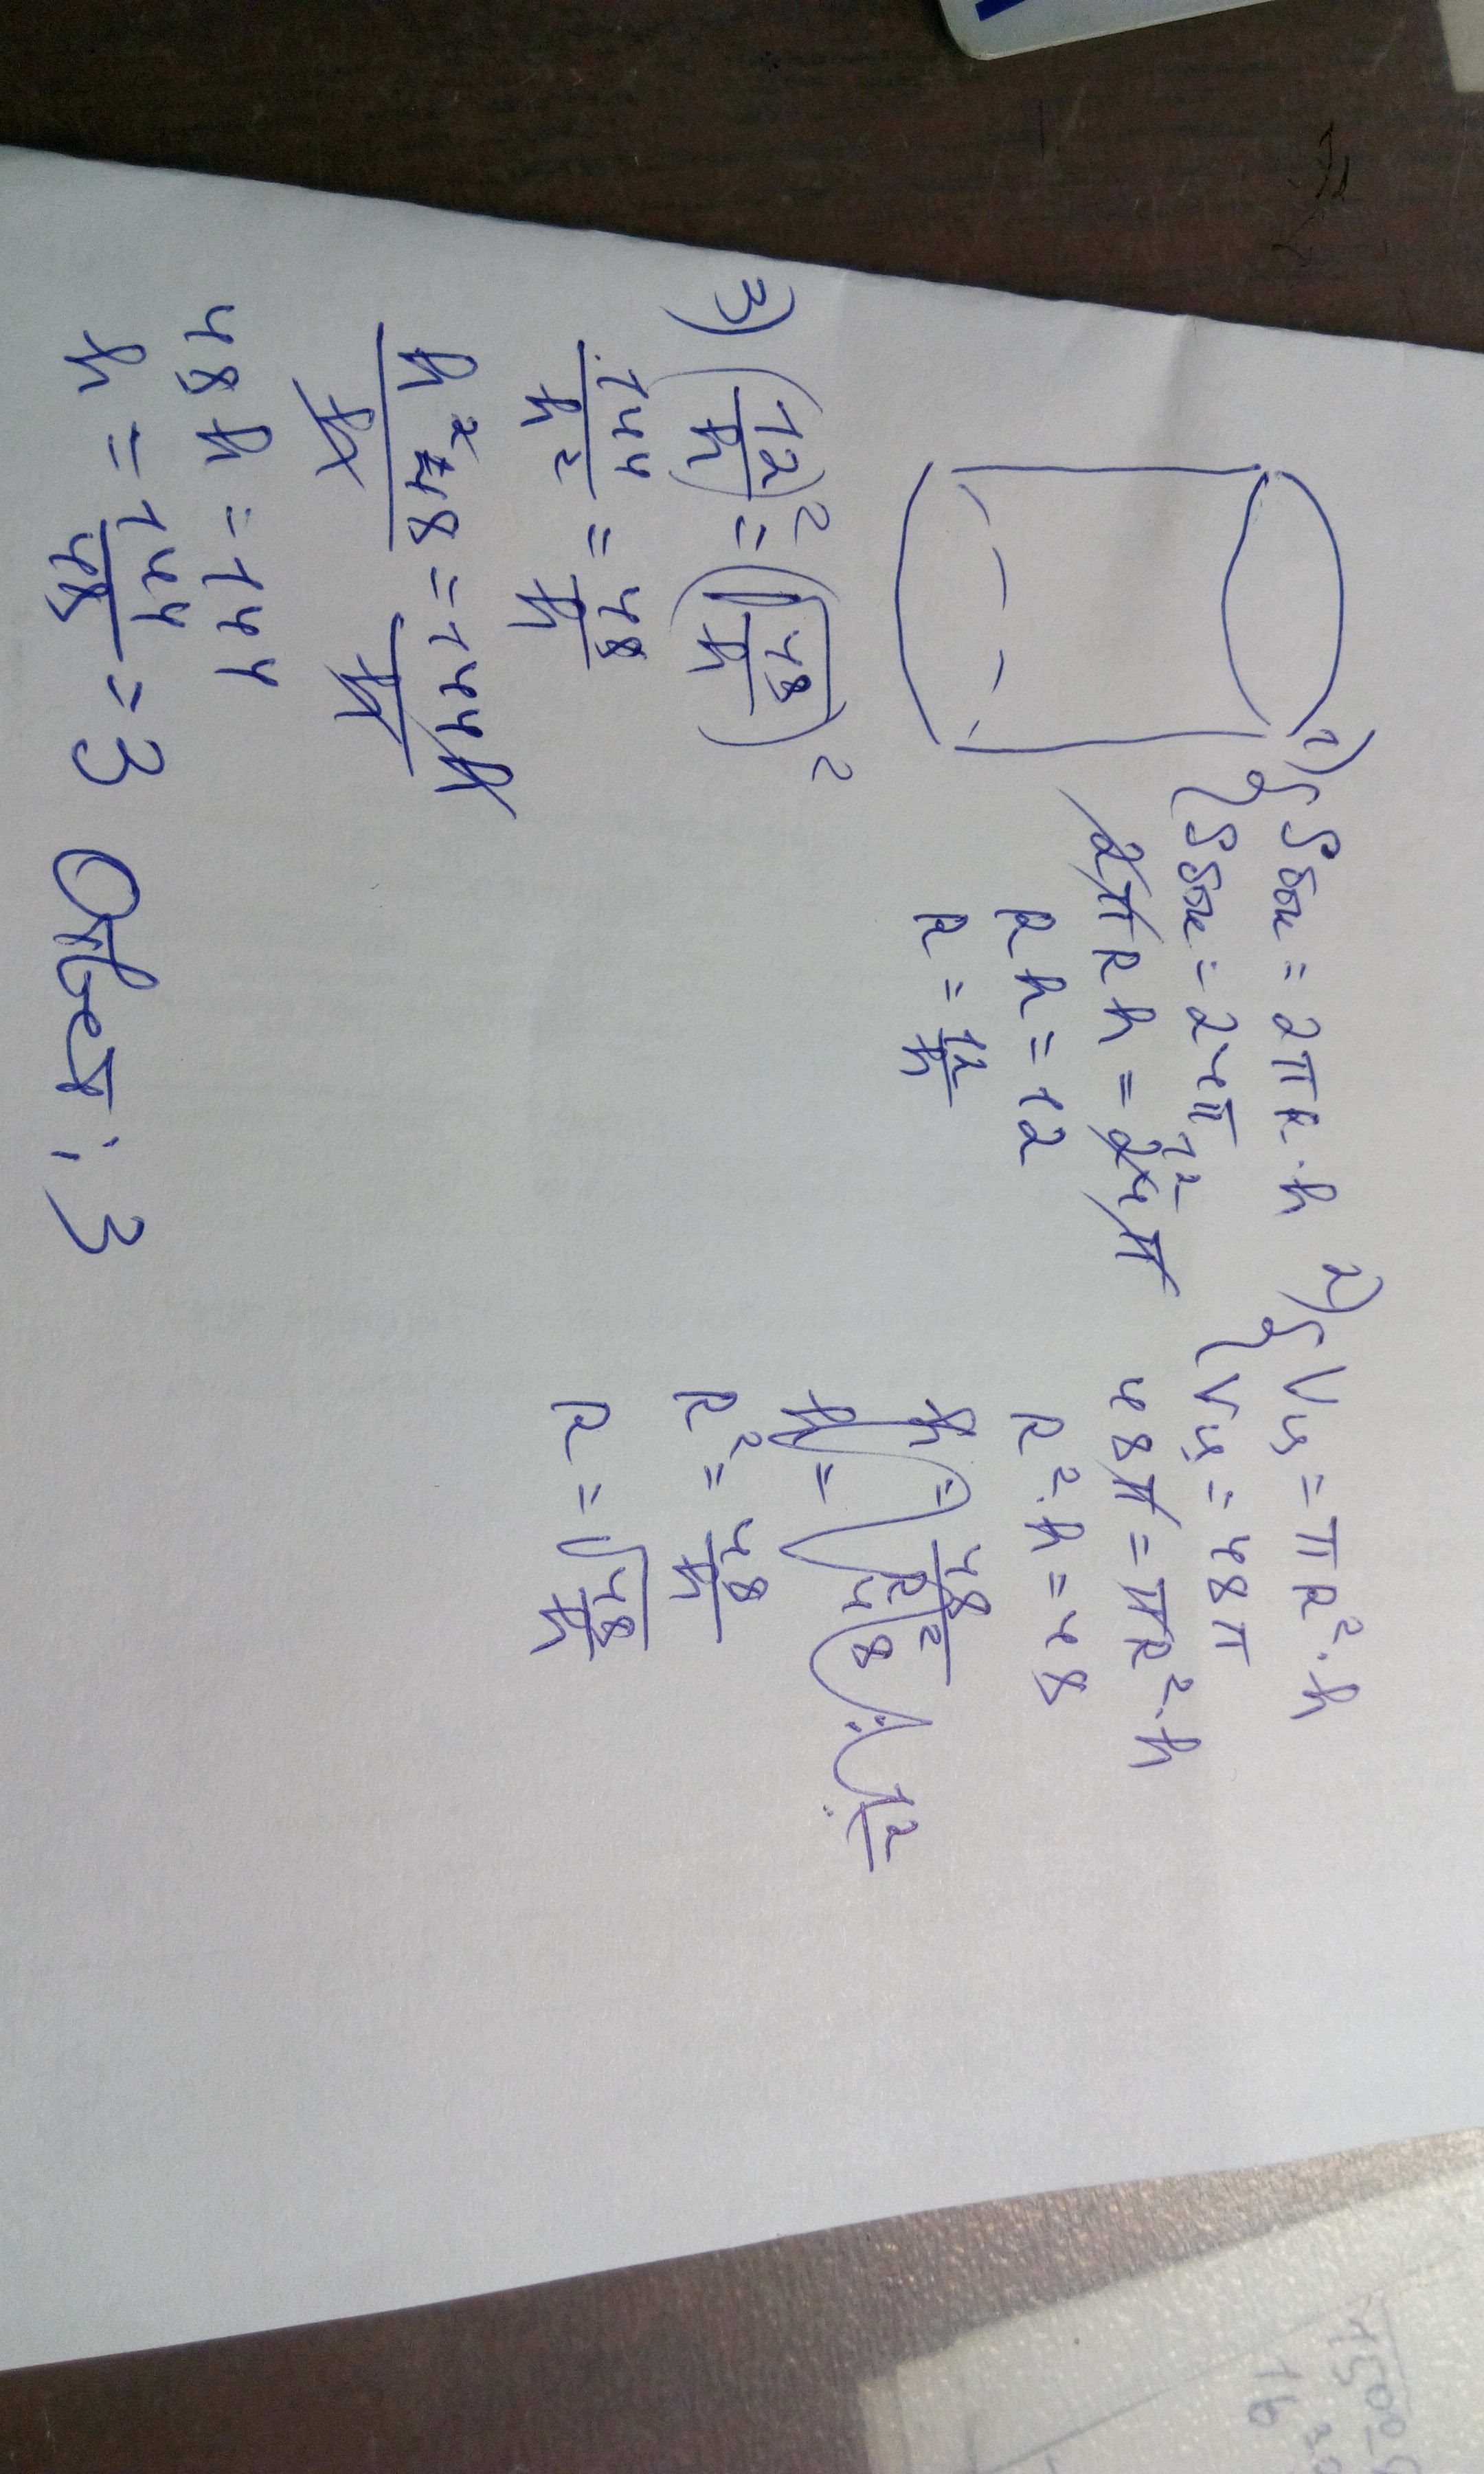 1) { Sбок = 2πR·h
{ Sбок = 24π
2πRh = 24π 12
Rh = 12
R = 12/h
2) { Vц = πR²·h
{ Vц = 48π
48π = πR²·h
R²·h = 48
h = 48/R²
R² = 48/h
R = √(48/h)
3) (12/h)² = (√(48/h))²
144/h² = 48/h
48h = 144
h = 144/48 = 3 Ответ: 3